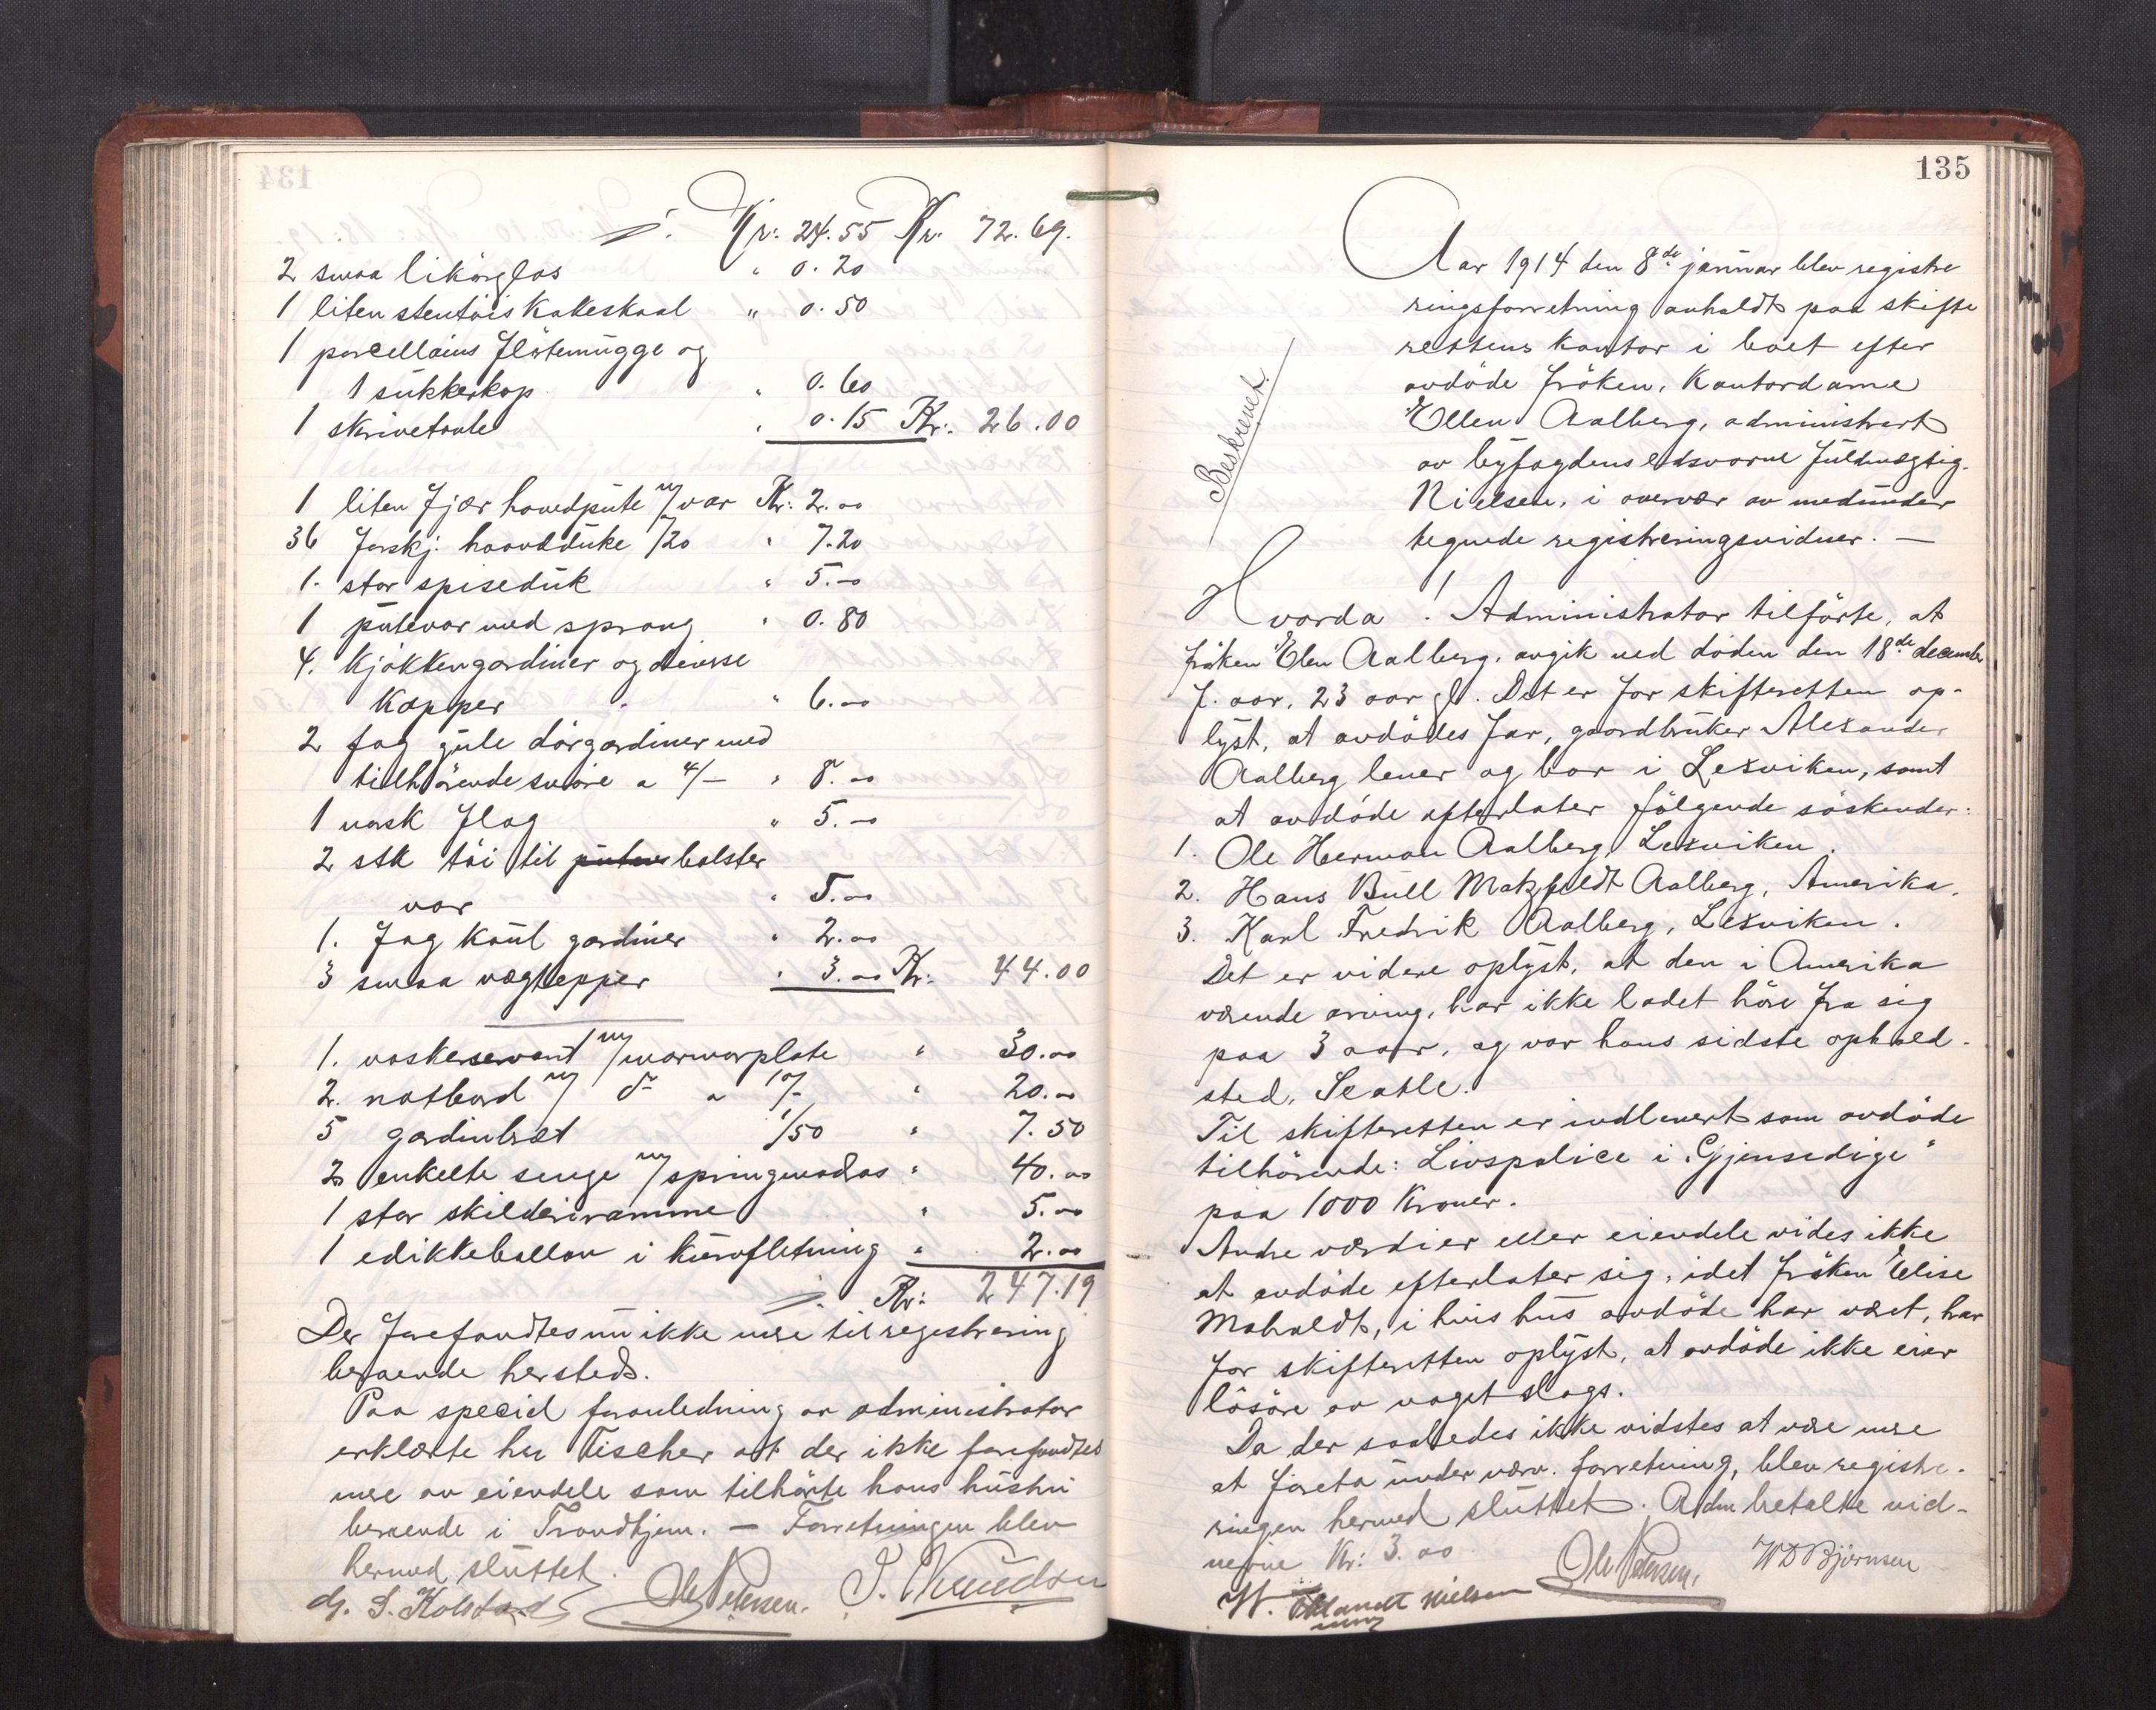 134
Kr: 24.55 Kr. 72.69.
2 smaa likörglas " 0.20
1 liten stentöis Kakeskaal " 0.50
1 porcellains flötemugge og
1 sukkerkop " 0.60
1 skrivetavle " 0.15 Kr: 26.00
1 liten fjær hovedpute m/var Kr: 2.00
36 forskj. haandduke /20 " 7.20
1. stor spisedük " 5.–
1 putevar med sprang " 0.80
4. Kjökkengardiner og diverse
Kapper " 6.00
2 fag gule dörgardiner med
tilhörende snöre a 4/– " 8.00
1 norsk flag " 5.–
2 stk töi til bolster
var " 5.00
1. fag Kaul gardiner " 2.00
3 smaa vægtepper " 3.00 Kr: 44.00
1. vaskeservant m/marmorplate " 30.00
2. natbord m/ do a 10/– " 20.–
5 gardinbræt 1/50 " 7.50
2 enkelte senge m/springmadras " 40.00
1 stor skilderiramme " 5.00
1 edikkeballon i kurvfletning " 2.00
Kr: 247.19
Der forefandtes nu ikke mere til registrering
beroende hersteds.
Paa speciel foranledning av administrator
erklærte hr Fischer at der ikke forefandtes
mere av eiendele som tilhörte hans hustru
beroende i Trondhjem. – Forretningen blev
hermed sluttet.
G. S. Kolstad Ole Petersen. J. Knudsen
135
Aar 1914 den 8de januar blev registre
ringsforretning avholdt paa skifte
rettens kontor i boet efter
avdöde fröken, Kontordame
Ellen Aalberg, administrert
av byfogdens edsvorne fuldmægtig
Nielsen, i overvær av medunder
tegnede registreringsvidner. —
Beskrevet.
Hvorda! Administrator tilförte, at
fröken Elen Aalberg, avgik ved döden den 18de decembr
f. aar, 23 aar gl. Det er for skifteretten op-
lyst, at avdödes far, gaardbruker Alexander
Aalberg lever og bor i Lexviken, samt
at avdöde efterlater fölgende söskender:
1. Ole Herman Aalberg, Lexviken.
2. Hans Bull Matzfeldt Aalberg, Amerika.
3. Karl Fredrik Aalberg, Lexviken.
Det er videre oplyst, at den i Amerika
værende arving, har ikke ladet höre fra sig
paa 3 aar, og var hans sidste ophold-
sted, Seatle.
Til skifteretten er indlevert som avdöde
tilhörende: Livspolice i „Gjensedige"
paa 1000 Kroner.
Andre værdier eller eiendele vides ikke
at avdöde efterlater sig, idet fröken Elise
Moholdt, i hvis hus avdöde har været, har
for skifteretten oplyst, at avdöde ikke eier
lösöre av noget slags.
Da der saaledes ikke vidstes at være mere
at foreta under nærv. forretning, blev registre-
ringen hermed sluttet. Adm betalte vid-
nerne Kr: 3.00
W. Nielsen Ole Petersen. W D Björnsen